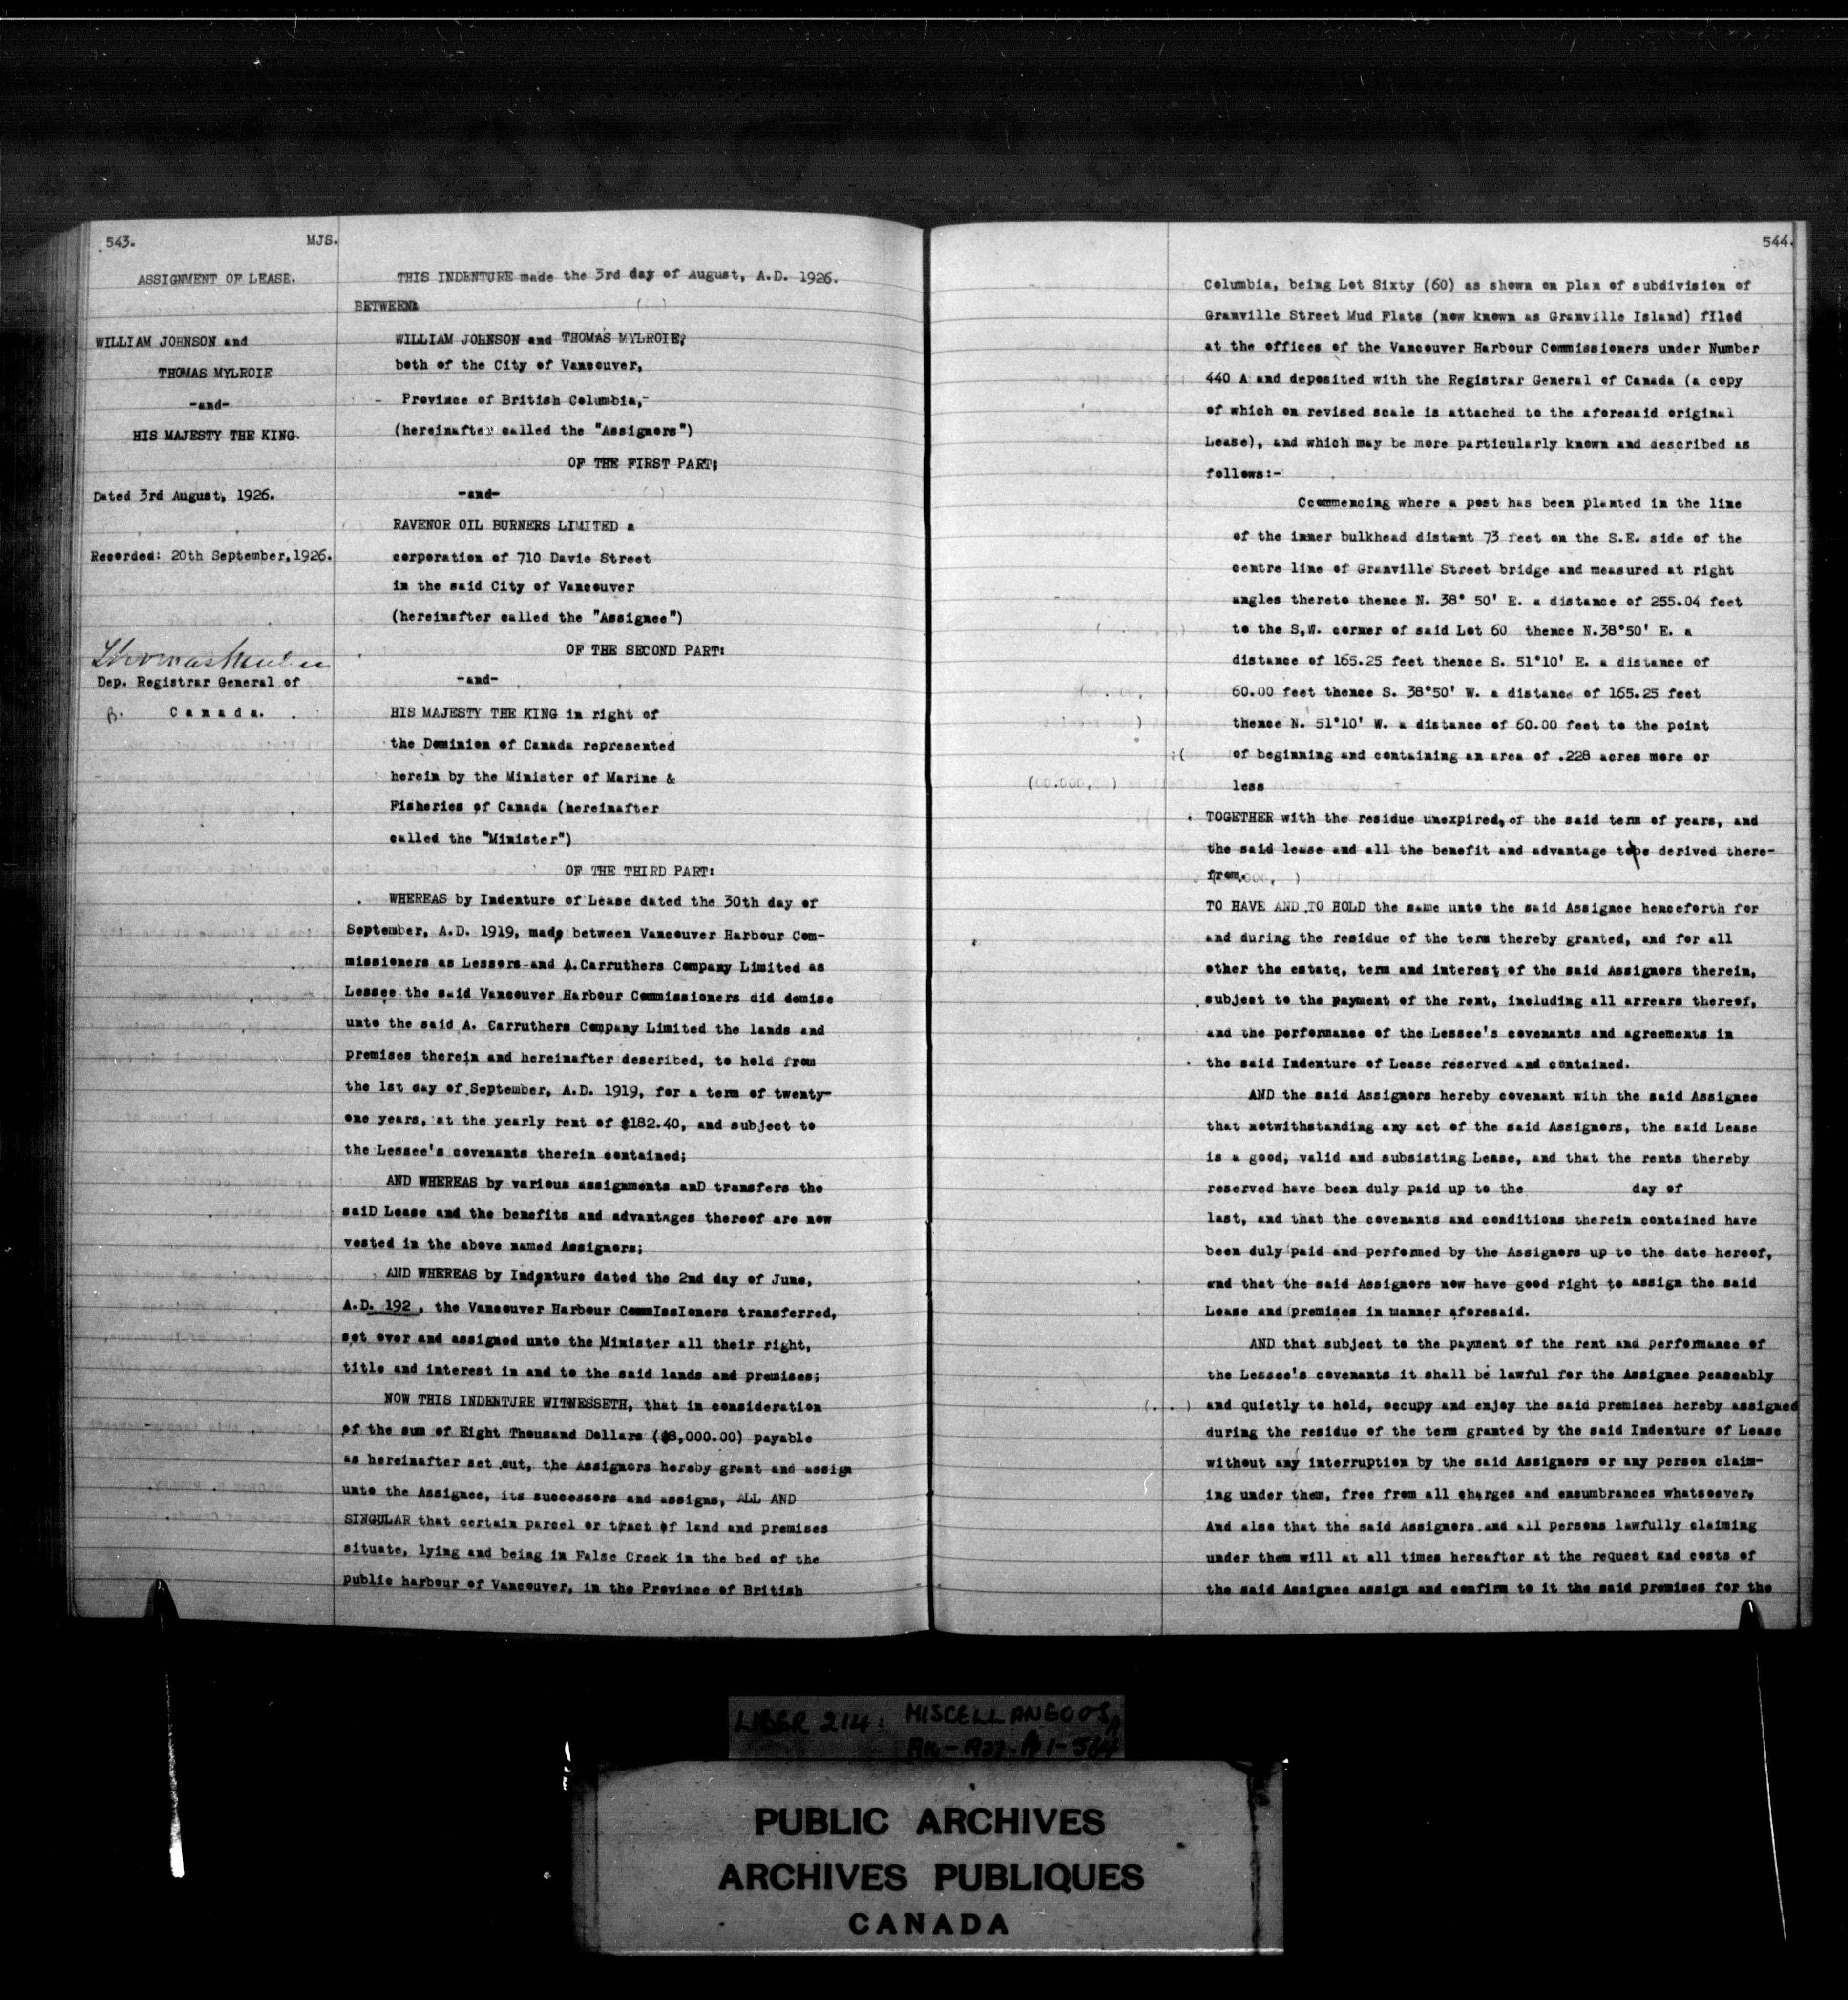 543.
MJS.
ASSIGNMENT OF LEASE.
WILLIAM JOHNSON and
THOMAS MYLROIE
-and-
HIS MAJESTY THE KING.
Dated 3rd August, 1926.
Recorded: 20th September, 1926.
Dep. Registrar General of
Canada.
THIS INDENTURE made the 3rd day of August, A.D. 1926.
BETWEEN:
WILLIAM JOHNSON and THOMAS MYLROIE,
both of the City of Vancouver,
- Province of British Columbia,-
(hereinafter called the "Assignors")
OF THE FIRST PART;
-and-
RAVENOR OIL BURNERS LIMITED a
corporation of 710 Davie Street
in the said City of Vancouver
(hereinafter called the "Assignee")
OF THE SECOND PART:
-and-
HIS MAJESTY THE KING in right of
the Dominion of Canada represented
herein by the Minister of Marine &
Fisheries of Canada (hereinafter
called the "Minister")
OF THE THIRD PART:
WHEREAS by Indenture of Lease dated the 30th day of
September, A.D. 1919, made between Vancouver Harbour Com-
missioners as Lessors and A. Carruthers Company Limited as
Lessee the said Vancouver Harbour Commissioners did demise
unto the said A. Carruthers Company Limited the lands and
premises therein and hereinafter described, to hold from
the 1st day of September, A.D. 1919, for a term of twenty-
one years, at the yearly rent of $182.40, and subject to
the Lessee's covenants therein contained;
AND WHEREAS by various assignments anD transfers the
saiD Lease and the benefits and advantages thereof are now
vested in the above named Assignors;
AND WHEREAS by Indenture dated the 2nd day of June,
A.D. 192 , the Vancouver Harbour CommIssIoners transferred,
set over and assigned unto the Minister all their right,
title and interest in and to the said lands and premises;
NOW THIS INDENTURE WITNESSETH, that in consideration
of the sum of Eight Thousand Dollars ($8,000.00) payable
as hereinafter set out, the Assignors hereby grant and assign
unto the Assignee, its successors and assigns, ALL AND
SINGULAR that certain parcel or tract of land and premises
situate, lying and being in False Creek in the bed of the
public harbour of Vancouver, in the Province of British
544.
Columbia, being Lot Sixty (60) as shown on plan of subdivision of
Granville Street Mud Flats (now known as Granville Island) fIled
at the offices of the Vancouver Harbour Commissioners under Number
440 A and deposited with the Registrar General of Canada (a copy
of which on revised scale is attached to the aforesaid original
Lease), and which may be more particularly known and described as
follows:-
Commencing where a post has been planted in the line
of the inner bulkhead distant 73 feet on the S.E. side of the
centre line of Granville Street bridge and measured at right
angles thereto thence N. 38° 50' E. a distance of 255.04 feet
to the S.W. corner of said Lot 60 thence N.38°50' E. a
distance of 165.25 feet thence S. 51°10' E. a distance of
60.00 feet thence S. 38°50' W. a distance of 165.25 feet
thence N. 51°10' W. a distance of 60.00 feet to the point
of beginning and containing an area of .228 acres more or
less
TOGETHER with the residue unexpired, of the said term of years, and
the said lease and all the benefit and advantage to be derived there-
from.
TO HAVE AND TO HOLD the same unto the said Assignee henceforth for
and during the residue of the term thereby granted, and for all
other the estate, term and interest of the said Assignors therein,
subject to the payment of the rent, including all arrears thereof,
and the performance of the Lessee's covenants and agreements in
the said Indenture of Lease reserved and contained.
AND the said Assignors hereby covenant with the said Assignee
that notwithstanding any act of the said Assignors, the said Lease
is a good, valid and subsisting Lease, and that the rents thereby
reserved have been duly paid up to the day of
last, and that the covenants and conditions therein contained have
been duly paid and performed by the Assignors up to the date hereof,
and that the said Assignors now have good right to assign the said
Lease and premises in manner aforesaid.
AND that subject to the payment of the rent and performance of
the Lessee's covenants it shall be lawful for the Assignee peaceably
and quietly to hold, occupy and enjoy the said premises hereby assigned
during the residue of the term granted by the said Indenture of Lease
without any interruption by the said Assignors or any person claim-
ing under them, free from all charges and encumbrances whatsoever,
And also that the said Assignors and all persons lawfully claiming
under them will at all times hereafter at the request and costs of
the said Assignee assign and confirm to it the said premises for the
LIBER 214: MISCELLANEOUS
PUBLIC ARCHIVES
ARCHIVES PUBLIQUES
CANADA